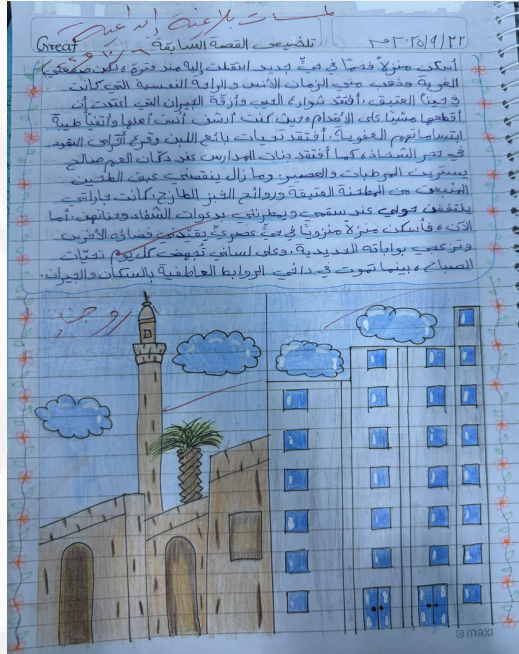 لمسات بلاغية إبداعية
Great
تلخيص القصة السابقة
٢٠٢٥/٩/٢٢م
أسكن منزلاً فخماً في حيٍّ جديد انتقلت إليه منذ فترة، لكن صفعتني
الغربة وذهب مني الزمان الأنس والراحة النفسية التي كانت
في حينا العتيق، أفتقد شوارع الحي وأزقّة الجيران التي اعتدت أن
أقطعها مشياً على الأقدام وحين كنت أرشف أنس أهلها وأتفيأ طيبة
ابتساماتهم العفوية. أفتقد تحيات بائع اللبن وقرع أقراص النقود
في حجر الشحاذة كما أفتقد بنات المدارس عند دكان العم صالح
يشترين المرطبات والعصير، وما زال ينقصني عبق الطحين
المنبعث من المطحنة العتيقة وروائح الخبز الطازج، كانت جاراتي
يلتففن حولي عند سقمي ويمطرنني بدعوات الشفاء وحنانهن، أما
الآن، فأسكن منزلاً منزوياً في حيٍّ عصريٍّ يقيّدني فضاؤه الأخرس
وترعبني بواباته الحديدية، وعلى لساني تُجهض كل يوم تحيّات
الصباح، بينما تموت في داخلي الروابط العاطفية بالسكان والجيران.
MAXI